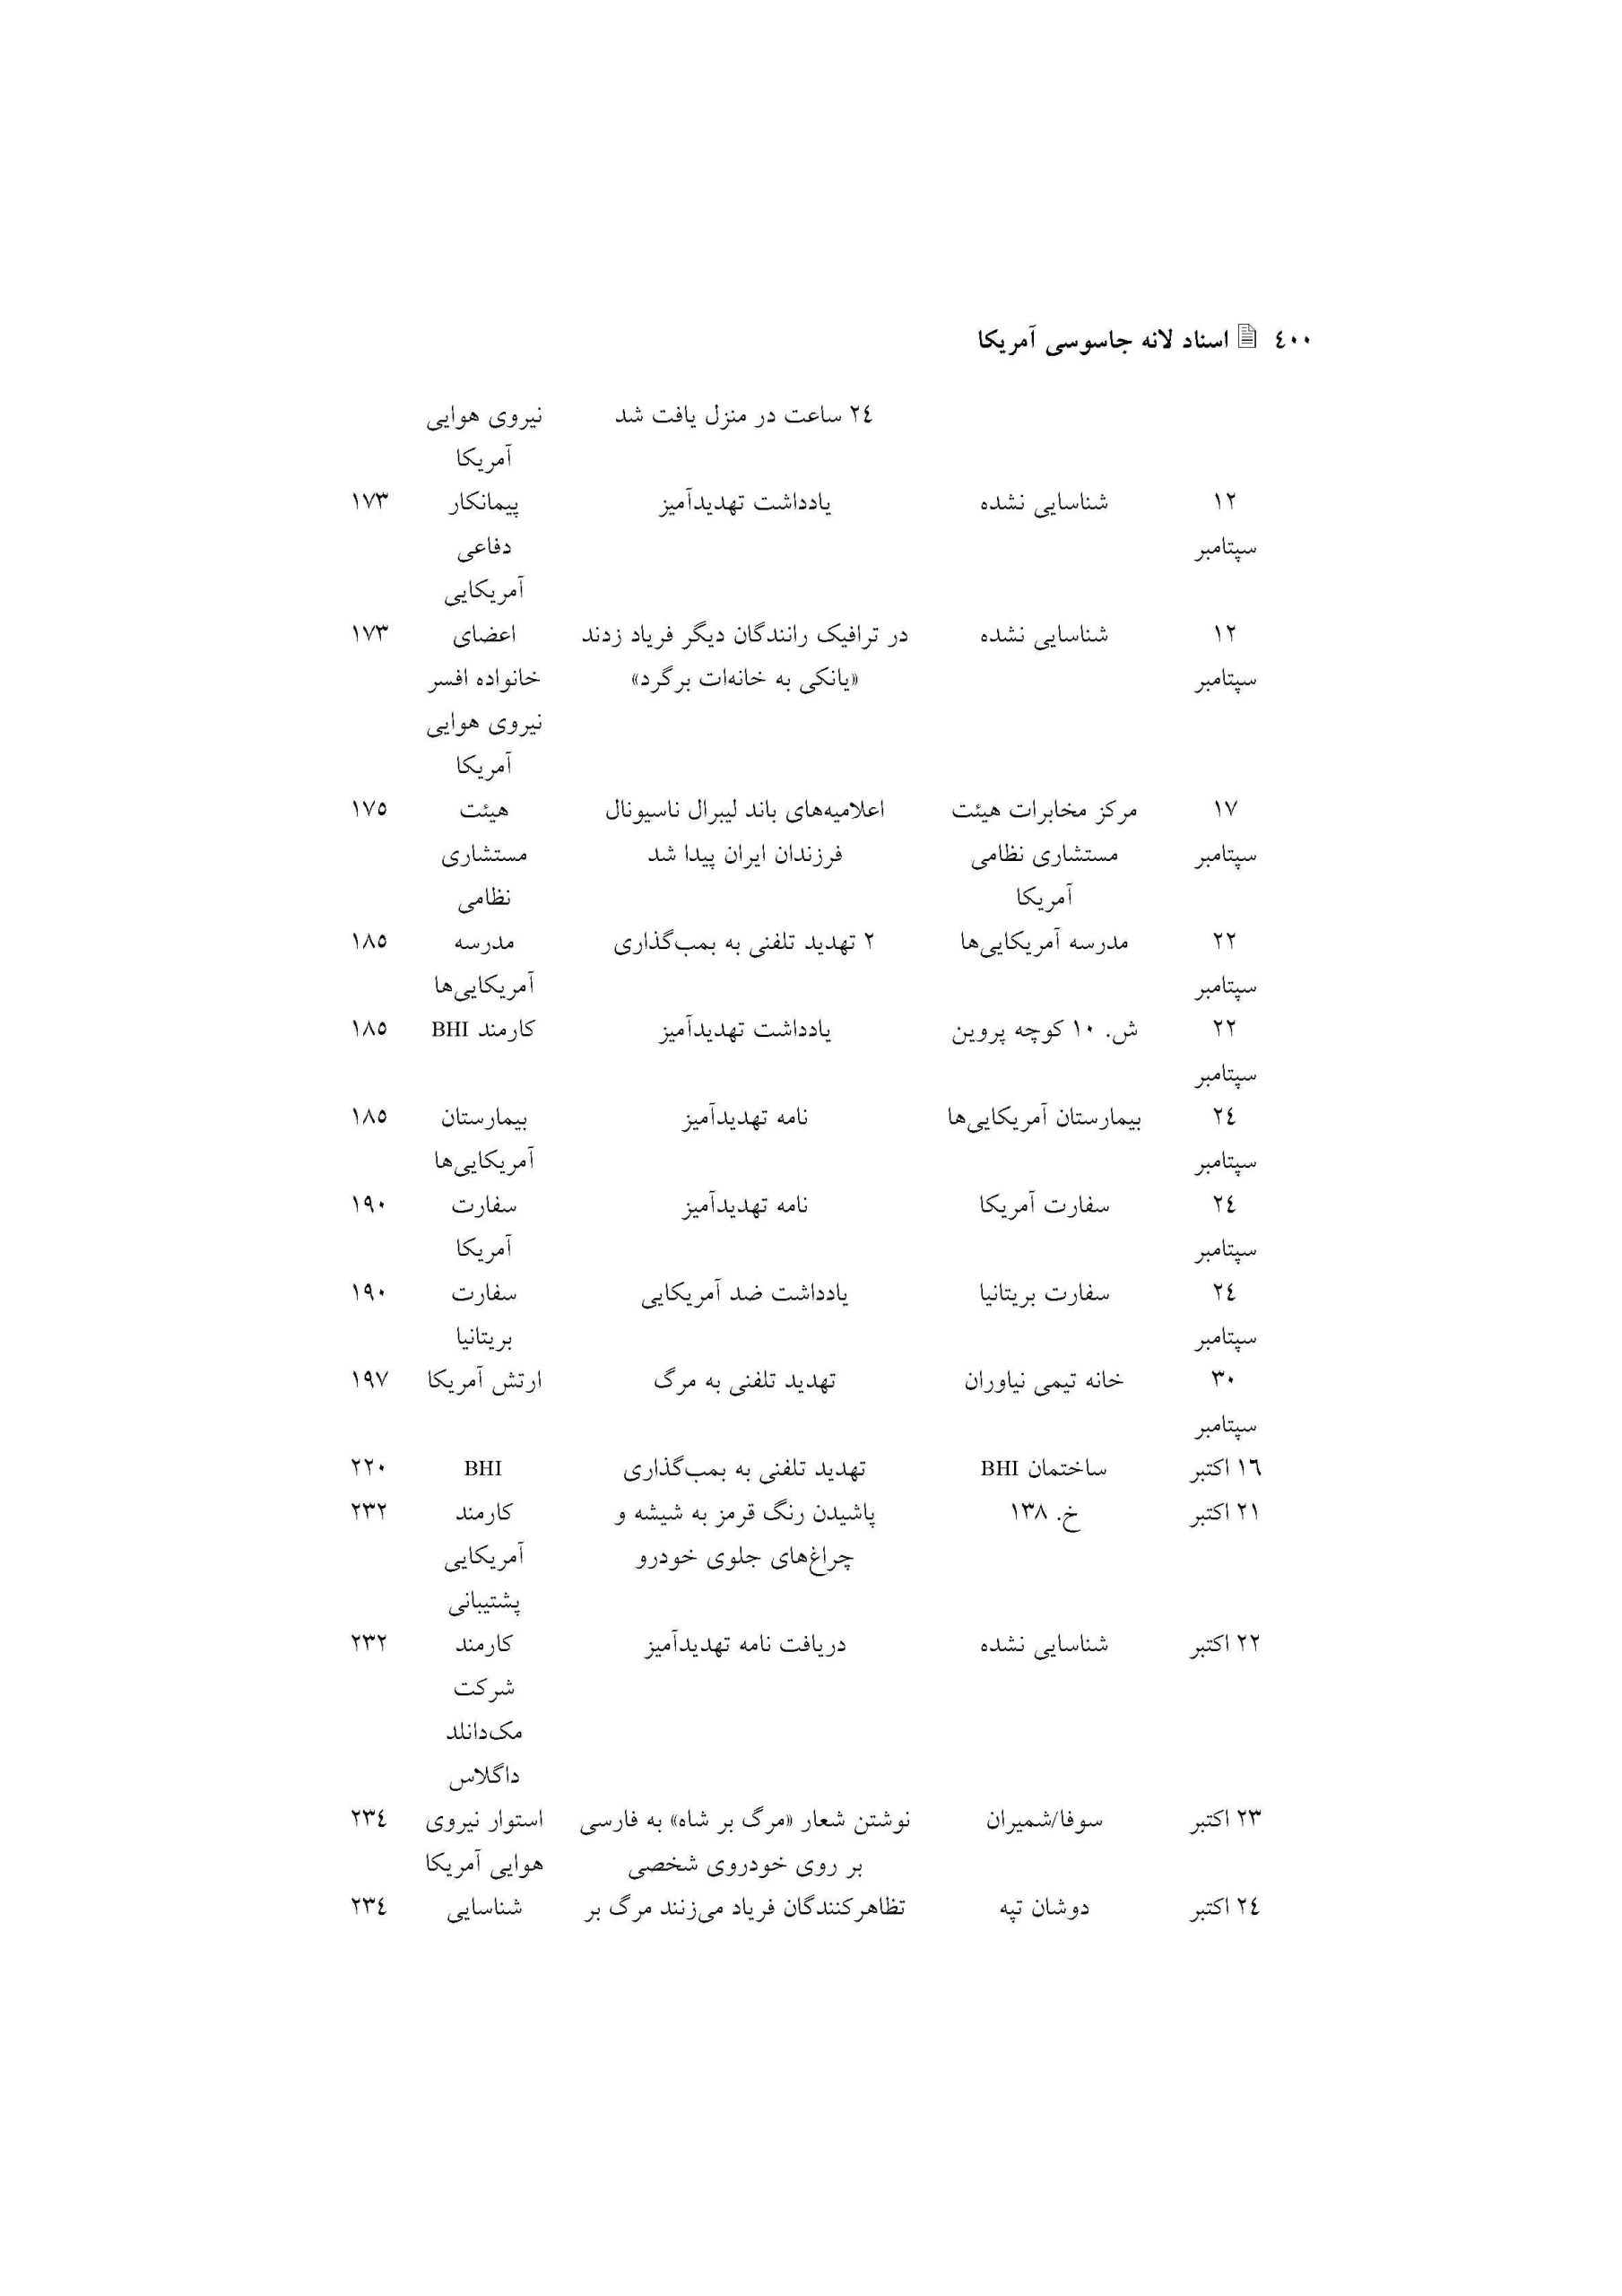 ٤٠٠ اسناد لانه جاسوسی آمریکا
٢٤ ساعت در منزل یافت شد نیروی هوایی
آمریکا
١٢ شناسایی نشده یادداشت تهدیدآمیز پیمانکار ١٧٣
سپتامبر دفاعی
آمریکایی
١٢ شناسایی نشده در ترافیک رانندگان دیگر فریاد زدند اعضای ١٧٣
سپتامبر «یانکی به خانه‌ات برگرد» خانواده افسر
نیروی هوایی
آمریکا
١٧ مرکز مخابرات هیئت اعلامیه‌های باند لیبرال ناسیونال هیئت ١٧٥
سپتامبر مستشاری نظامی فرزندان ایران پیدا شد مستشاری
آمریکا نظامی
٢٢ مدرسه آمریکایی‌ها ٢ تهدید تلفنی به بمب‌گذاری مدرسه ١٨٥
سپتامبر آمریکایی‌ها
٢٢ ش. ١٠ کوچه پروین یادداشت تهدیدآمیز کارمند BHI ١٨٥
سپتامبر
٢٤ بیمارستان آمریکایی‌ها نامه تهدیدآمیز بیمارستان ١٨٥
سپتامبر آمریکایی‌ها
٢٤ سفارت آمریکا نامه تهدیدآمیز سفارت ١٩٠
سپتامبر آمریکا
٢٤ سفارت بریتانیا یادداشت ضد آمریکایی سفارت ١٩٠
سپتامبر بریتانیا
٣٠ خانه تیمی نیاوران تهدید تلفنی به مرگ ارتش آمریکا ١٩٧
سپتامبر
١٦ اکتبر ساختمان BHI تهدید تلفنی به بمب‌گذاری BHI ٢٢٠
٢١ اکتبر خ. ١٣٨ پاشیدن رنگ قرمز به شیشه و کارمند ٢٣٢
چراغ‌های جلوی خودرو آمریکایی
پشتیبانی
٢٢ اکتبر شناسایی نشده دریافت نامه تهدیدآمیز کارمند ٢٣٢
شرکت
مک‌دانلد
داگلاس
٢٣ اکتبر سوفا/شمیران نوشتن شعار «مرگ بر شاه» به فارسی استوار نیروی ٢٣٤
بر روی خودروی شخصی هوایی آمریکا
٢٤ اکتبر دوشان تپه تظاهرکنندگان فریاد می‌زنند مرگ بر شناسایی ٢٣٤